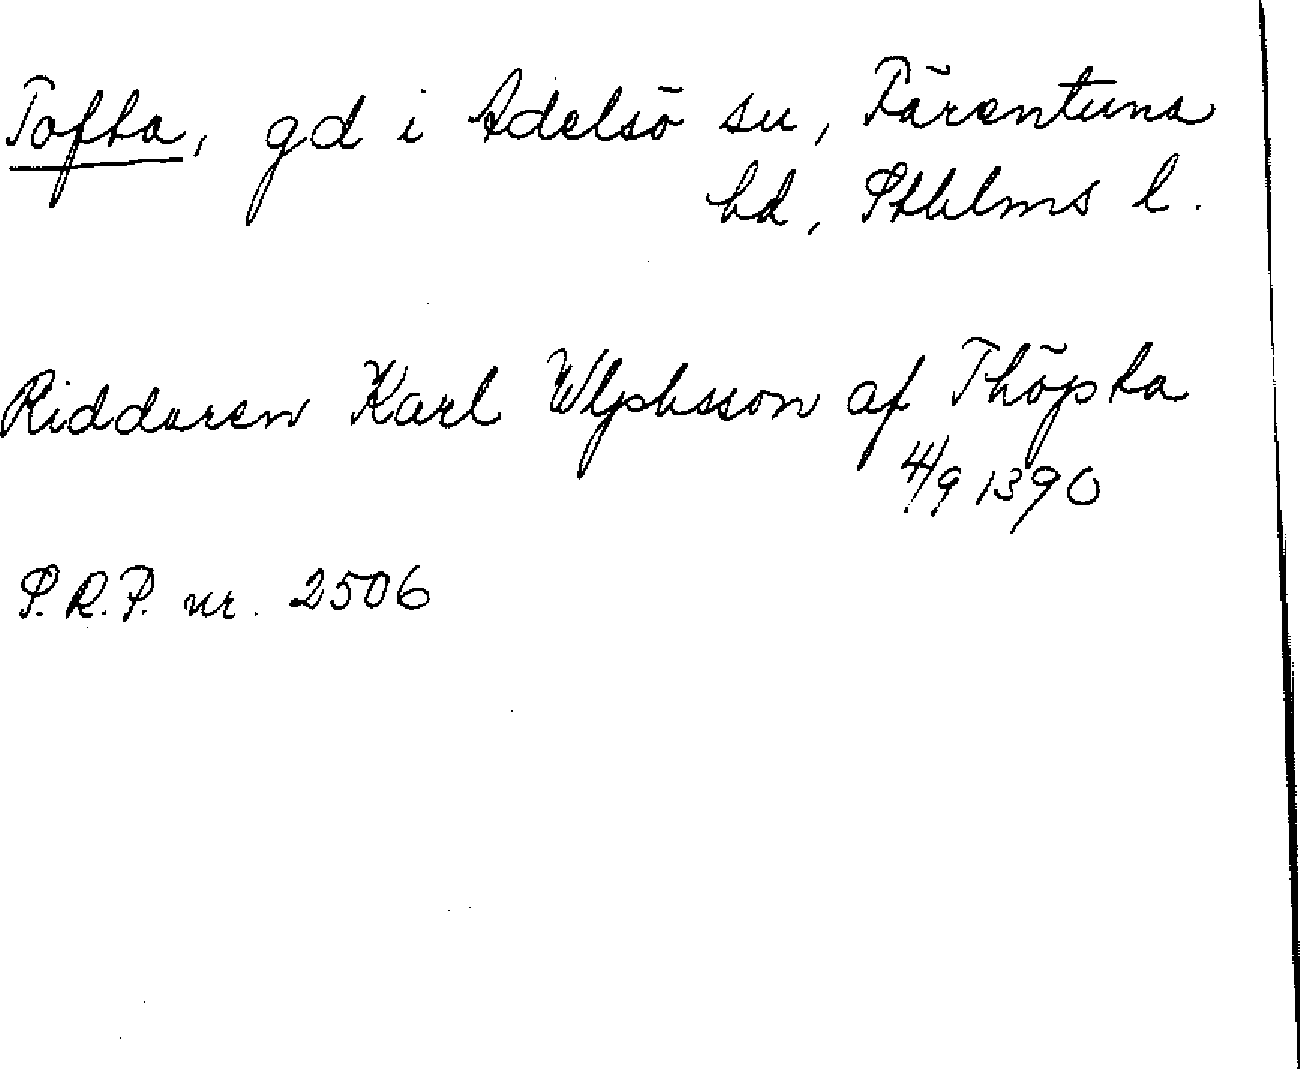 Tofta, gd i Adelsö sn, Färentuna
hd, Sthlms l.
Riddaren Karl Ulphsson af Thöpta
4/9 1390
S.R.P. nr. 2506